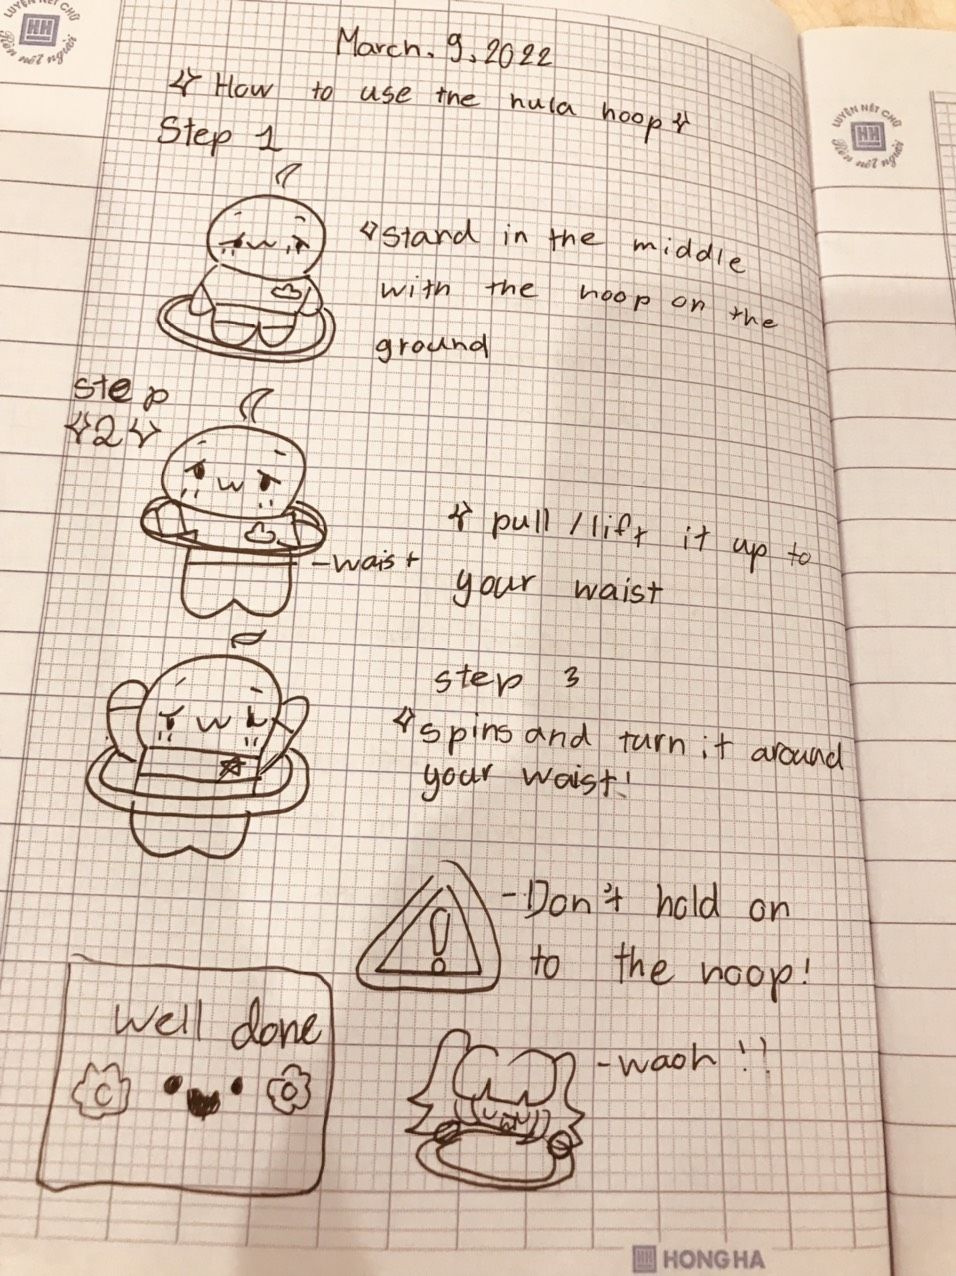 LUYỆN NÉT CHỮ
HH
Rèn nết người
March. 9. 2022
How to use the hula hoop
Step 1
stand in the middle
with the hoop on the
ground
LUYỆN NÉT CHỮ
HH
Rèn nết người
step
2
pull / lift it up to
your waist
-waist
step 3
spins and turn it around
your waist!
!
-Don't hold on
to the hoop!
well done
-waoh !!
HH HONG HA